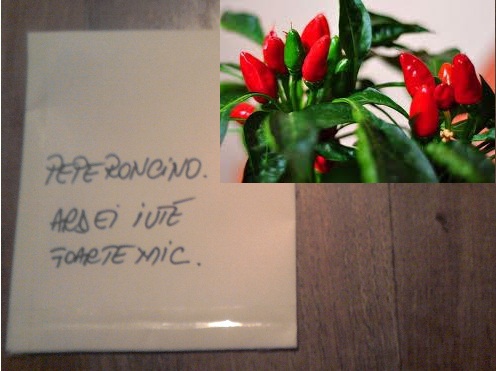 PEPERONCINO.
ARDEI IUTE
FOARTE MIC.